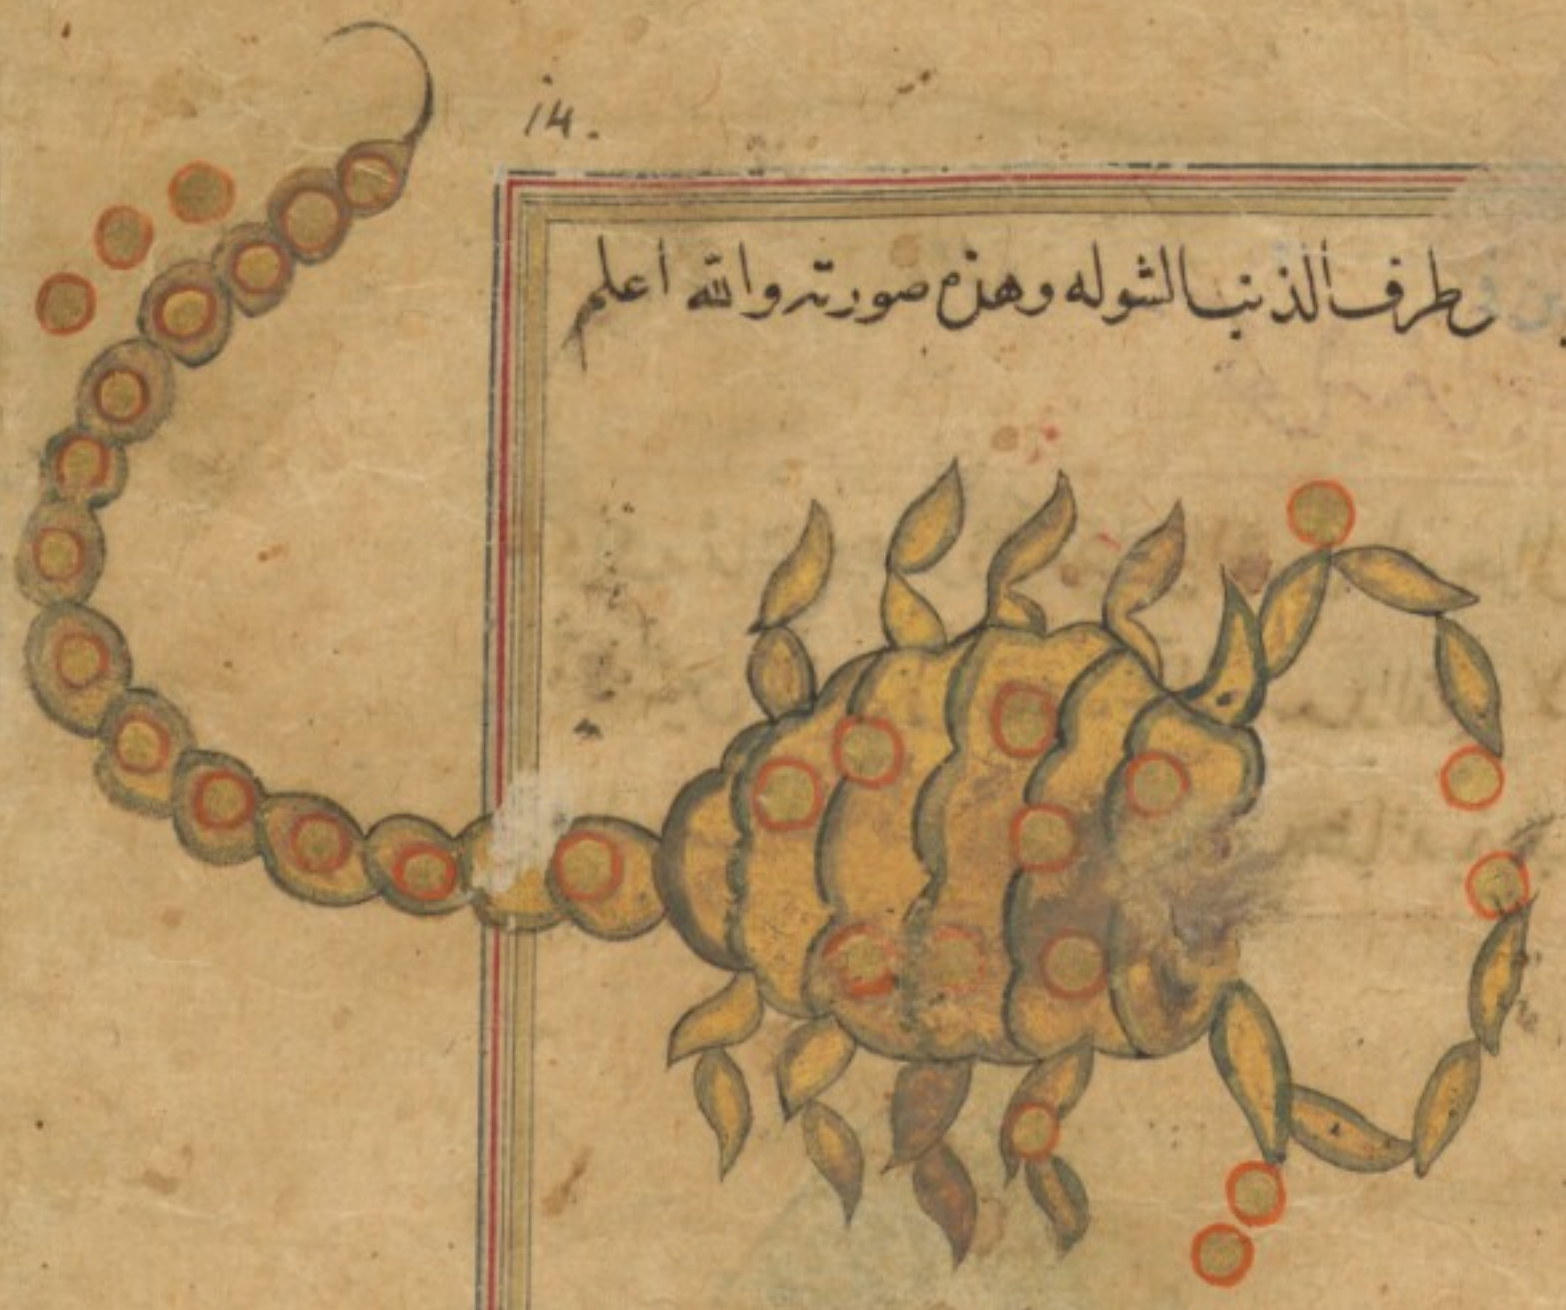 14.
طرف الذنب الشوله وهذه صورته والله أعلم